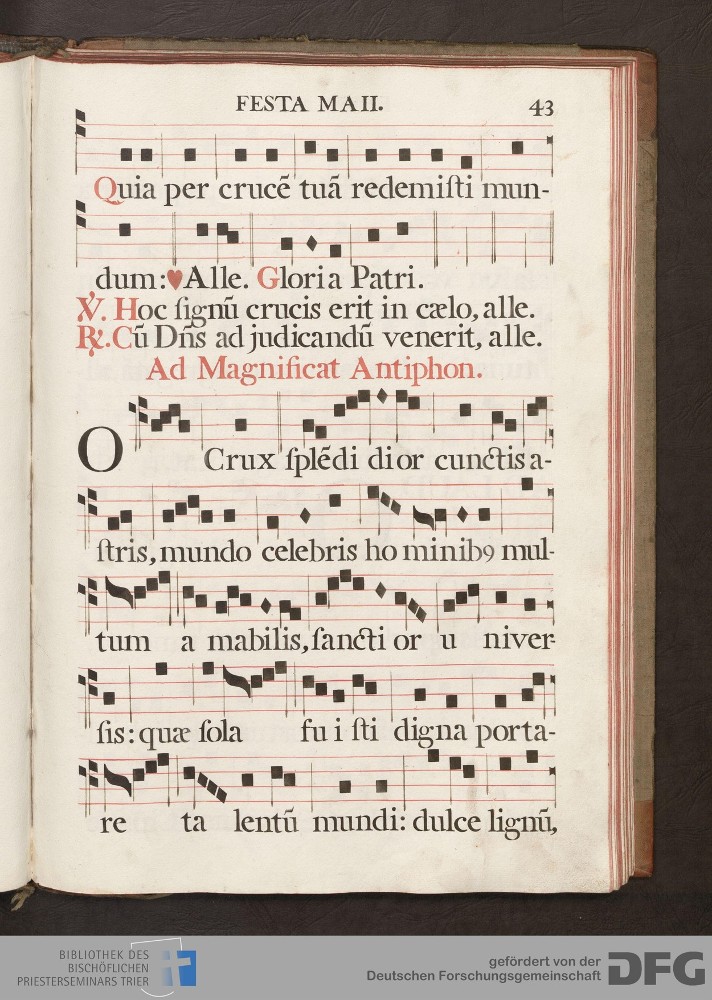 FESTA MAII. 43
Quia per crucē tuā redemiſti mun-
dum:♥Alle. Gloria Patri.
℣. Hoc ſignū crucis erit in cælo, alle.
℟. Cū Dn̄s ad judicandū venerit, alle.
Ad Magnificat Antiphon.
O Crux ſplēdi di or cunctis a-
ſtris, mundo celebris ho minib9 mul-
tum a mabilis, ſancti or u niver-
ſis: quæ ſola fu i ſti digna porta-
re ta lentū mundi: dulce lignū,
BIBLIOTHEK DES
BISCHÖFLICHEN
PRIESTERSEMINARS TRIER
gefördert von der
Deutschen Forschungsgemeinschaft
DFG